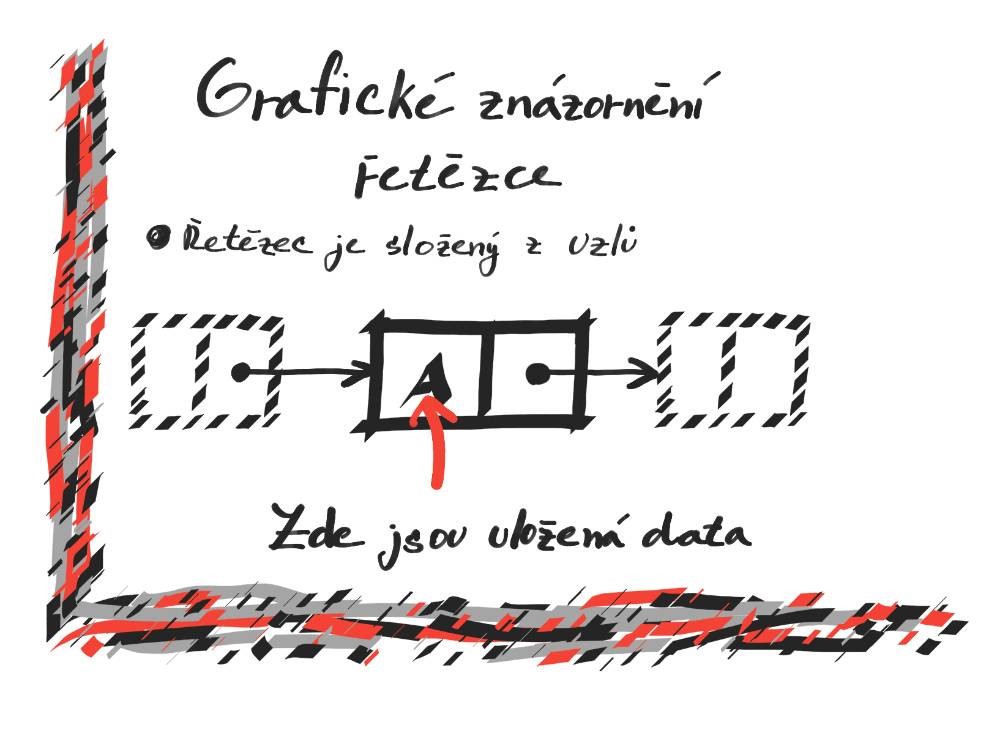 Grafické znázornění
řetězce
Řetězec je složený z uzlů
A
Zde jsou uložená data